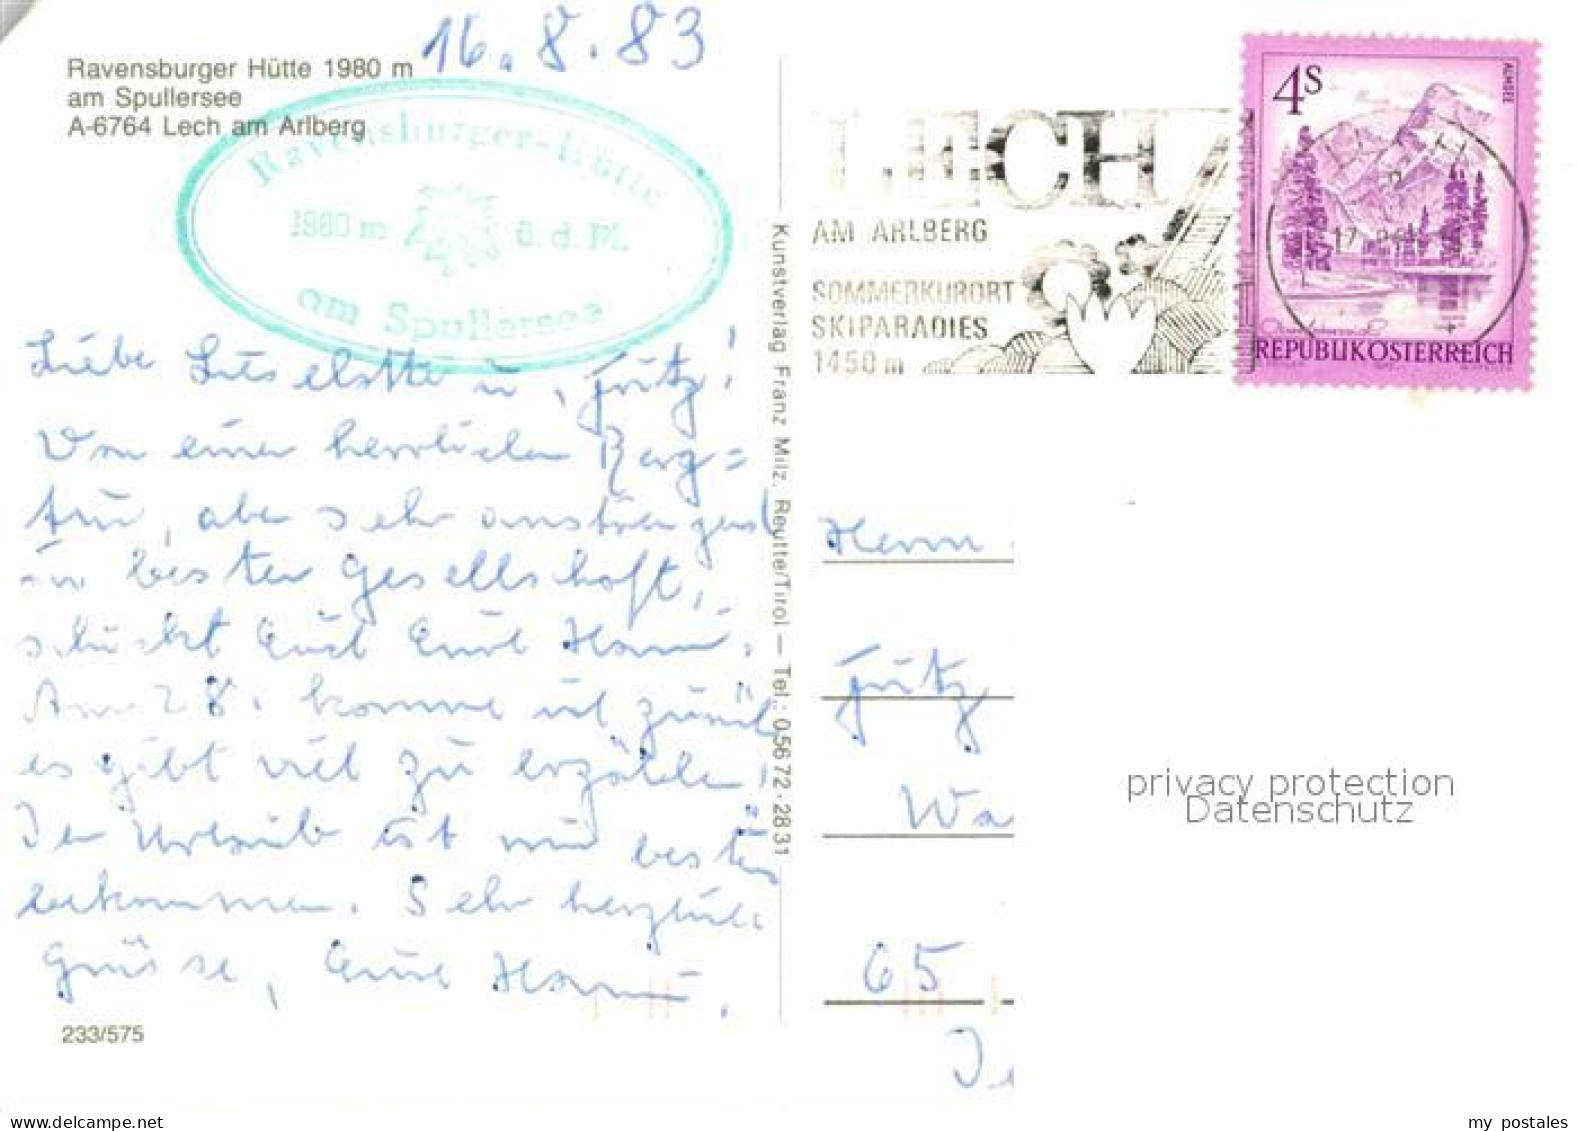 16.8.83
Ravensburger Hütte 1980 m
am Spullersee
A-6764 Lech am Arlberg
Ravensburger-Hütte
1980 m ü. d. M.
am Spullersee
Liebe Liselotte u. Fritz!
Von einer herrlichen Berg=
tour, aber sehr anstrengend
in bester Gesellschaft,
schickt Euch Eure Hanni.
Am 28. komme ich zurück
es gibt viel zu erzählen!
Der Urlaub ist mir bestens
bekommen. Sehr herzliche
Grüsse, Eure Hanni.
233/575
Kunstverlag Franz Milz, Reutte/Tirol — Tel.: 05672-2831
LECH
AM ARLBERG
SOMMERKURORT
SKIPARADIES
1450 m
4S
ALMSEE
REPUBLIK ÖSTERREICH
Herrn
Fritz
Wa
65
privacy protection
Datenschutz
www.delcampe.net
my_postales